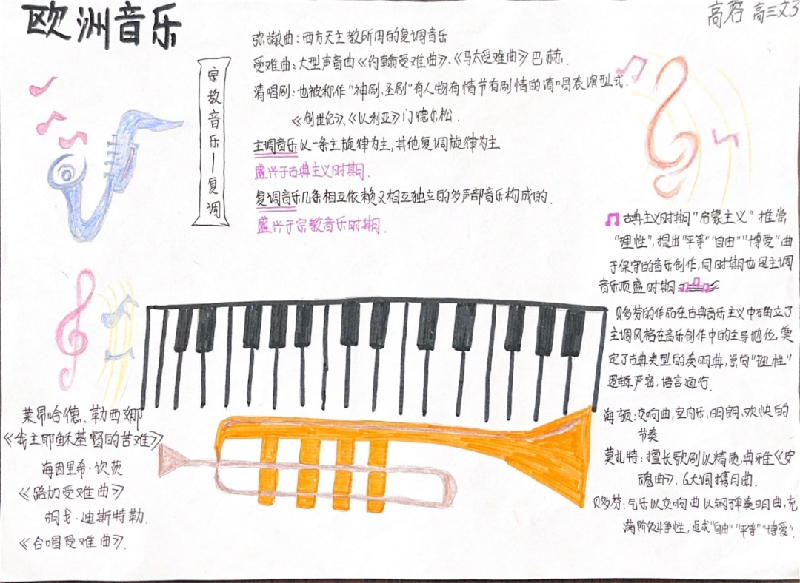 欧洲音乐
高三文3
宗教音乐—复调
弥撒曲：西方天主教所用的复调音乐
受难曲：大型声音曲《约翰受难曲》、《马太受难曲》巴赫.
清唱剧：也被称作"神剧、圣剧"有人物有情节有剧情的
《创世纪》、《以利亚》门德尔松.
主调音乐以一条主旋律为主，其他复调旋律为主
盛兴于古典主义时期.
复调音乐几条相互依赖又相互独立的多声部音乐构成的.
盛兴于宗教音乐时期.
古典主义时期"启蒙主义"推崇
"理性"，提出"平等""自由""博爱"由
于保守的音乐创作，同时期也是主调
音乐顶盛时期
贝多芬的作品在古典音乐主义中确立了
主调风格在音乐创作中的主导地位，奠
定了古典类型的奏鸣典，"理性"
逻辑严密，语言通俗.
海顿：交响曲，室内乐，明朗，欢快的
节奏
莫扎特：擅长歌剧以精质典雅《安
魂曲》.
贝多芬：
满阶级斗争性，"自由""平等""博爱".
莱昂哈德、勒西娜
《救主耶稣基督的苦难》
海因里希·饮茨
《路加受难曲》
胡戈·迪斯特勒.
《合唱受难曲》.